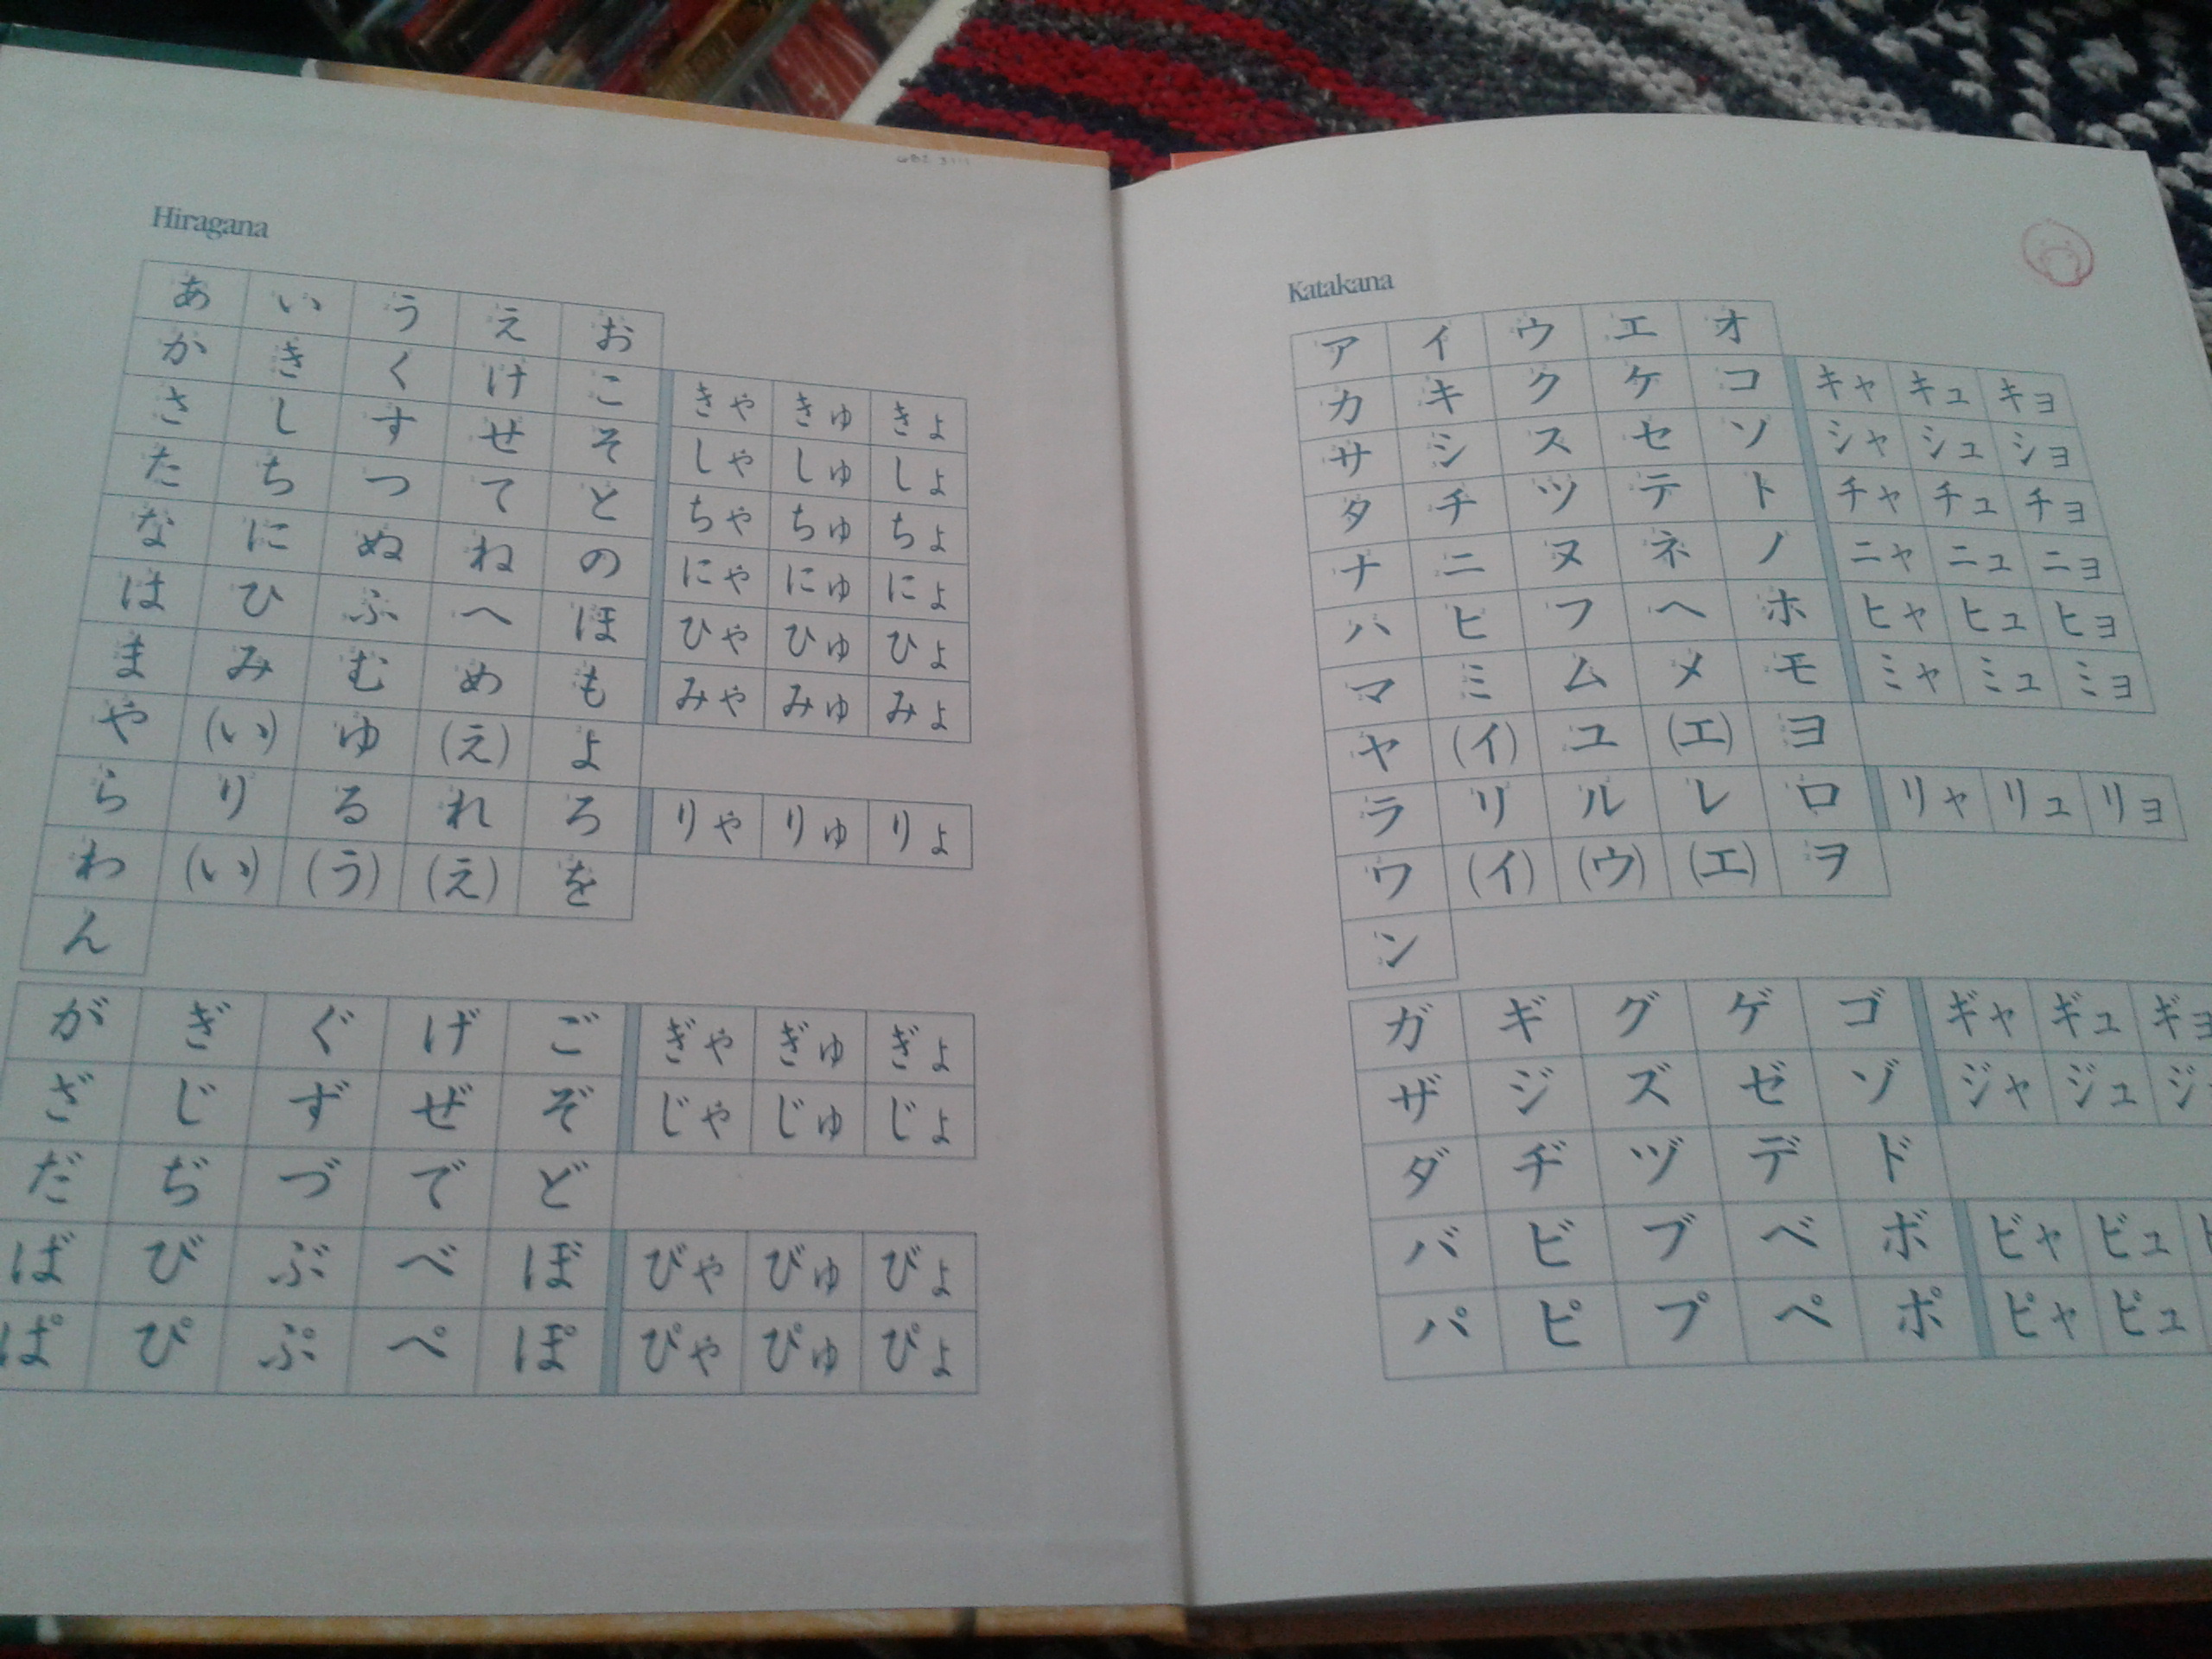 Hiragana
あ い う え お
か き く け こ きゃ きゅ きょ
さ し す せ そ しゃ しゅ しょ
た ち つ て と ちゃ ちゅ ちょ
な に ぬ ね の にゃ にゅ にょ
は ひ ふ へ ほ ひゃ ひゅ ひょ
ま み む め も みゃ みゅ みょ
や (い) ゆ (え) よ
ら り る れ ろ りゃ りゅ りょ
わ (い) (う) (え) を
ん
が ぎ ぐ げ ご ぎゃ ぎゅ ぎょ
ざ じ ず ぜ ぞ じゃ じゅ じょ
だ ぢ づ で ど
ば び ぶ べ ぼ びゃ びゅ びょ
ぱ ぴ ぷ ぺ ぽ ぴゃ ぴゅ ぴょ
Katakana
ア イ ウ エ オ
カ キ ク ケ コ キャ キュ キョ
サ シ ス セ ソ シャ シュ ショ
タ チ ツ テ ト チャ チュ チョ
ナ ニ ヌ ネ ノ ニャ ニュ ニョ
ハ ヒ フ ヘ ホ ヒャ ヒュ ヒョ
マ ミ ム メ モ ミャ ミュ ミョ
ヤ (イ) ユ (エ) ヨ
ラ リ ル レ ロ リャ リュ リョ
ワ (イ) (ウ) (エ) ヲ
ン
ガ ギ グ ゲ ゴ ギャ ギュ ギョ
ザ ジ ズ ゼ ゾ ジャ ジュ ジ
ダ ヂ ヅ デ ド
バ ビ ブ ベ ボ ビャ ビュ
パ ピ プ ペ ポ ピャ ピュ